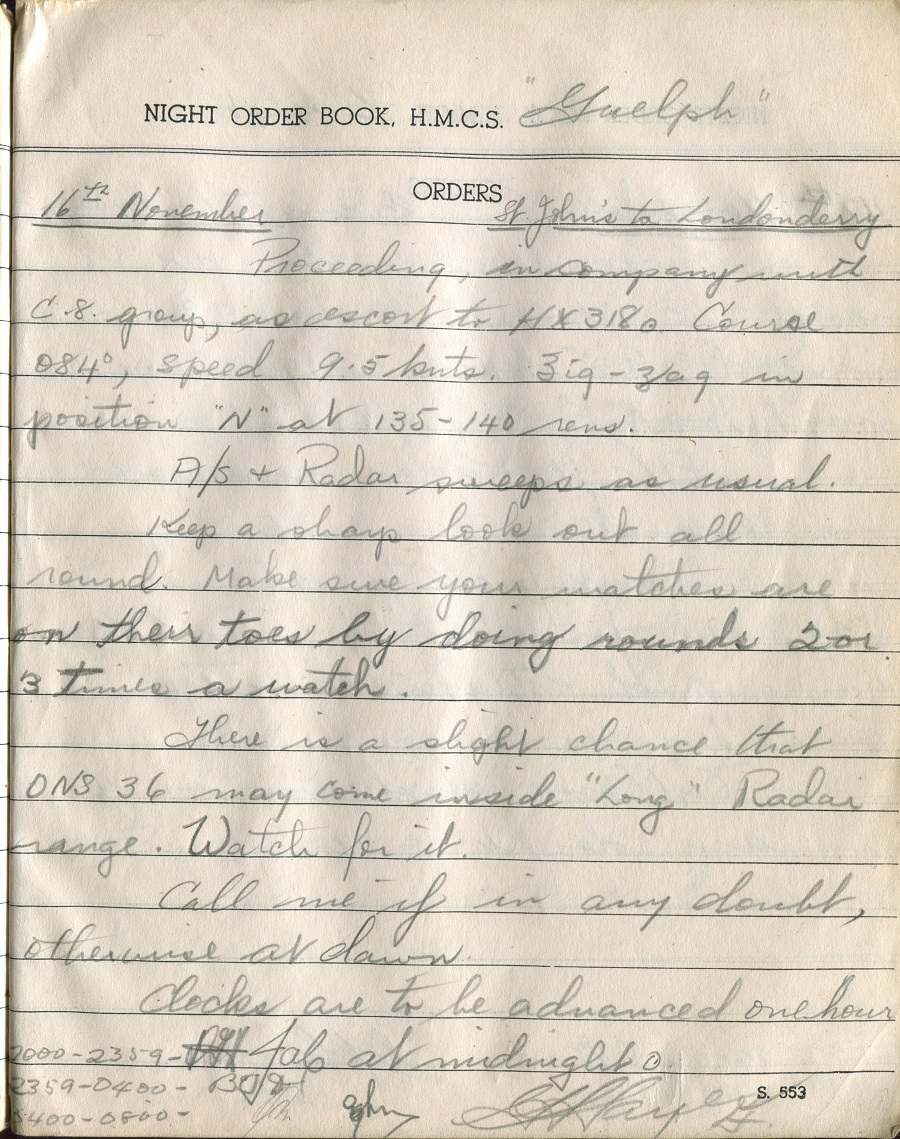 NIGHT ORDER BOOK, H.M.C.S. "Guelph"
ORDERS
16th November St. John's to Londonderry
Proceeding, in company with
C.8. group, as escort to HX318. Course
084°, speed 9.5 knts. Zig-zag in
position "N" at 135-140 revs.
A/S + Radar sweeps as usual.
Keep a sharp look out all
round. Make sure your watches are
on their toes by doing rounds 2 or
3 times a watch.
There is a slight chance that
ONS 36 may come inside "Long" Radar
range. Watch for it.
Call me if in any doubt,
otherwise at dawn.
Clocks are to be advanced one hour
2000-2359- at midnight.
2359-0400-
0400-0800-
S. 553